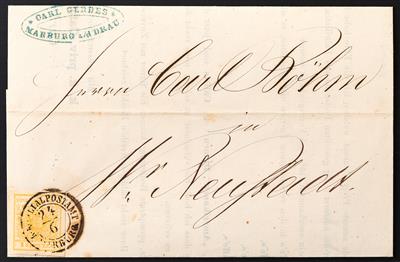 CARL GERDES
MARBURG a/d DRAU.
Herrn Carl Böhm
in
Wr Neustadt.
FILIALPOSTAMT
24
6
MARBURG